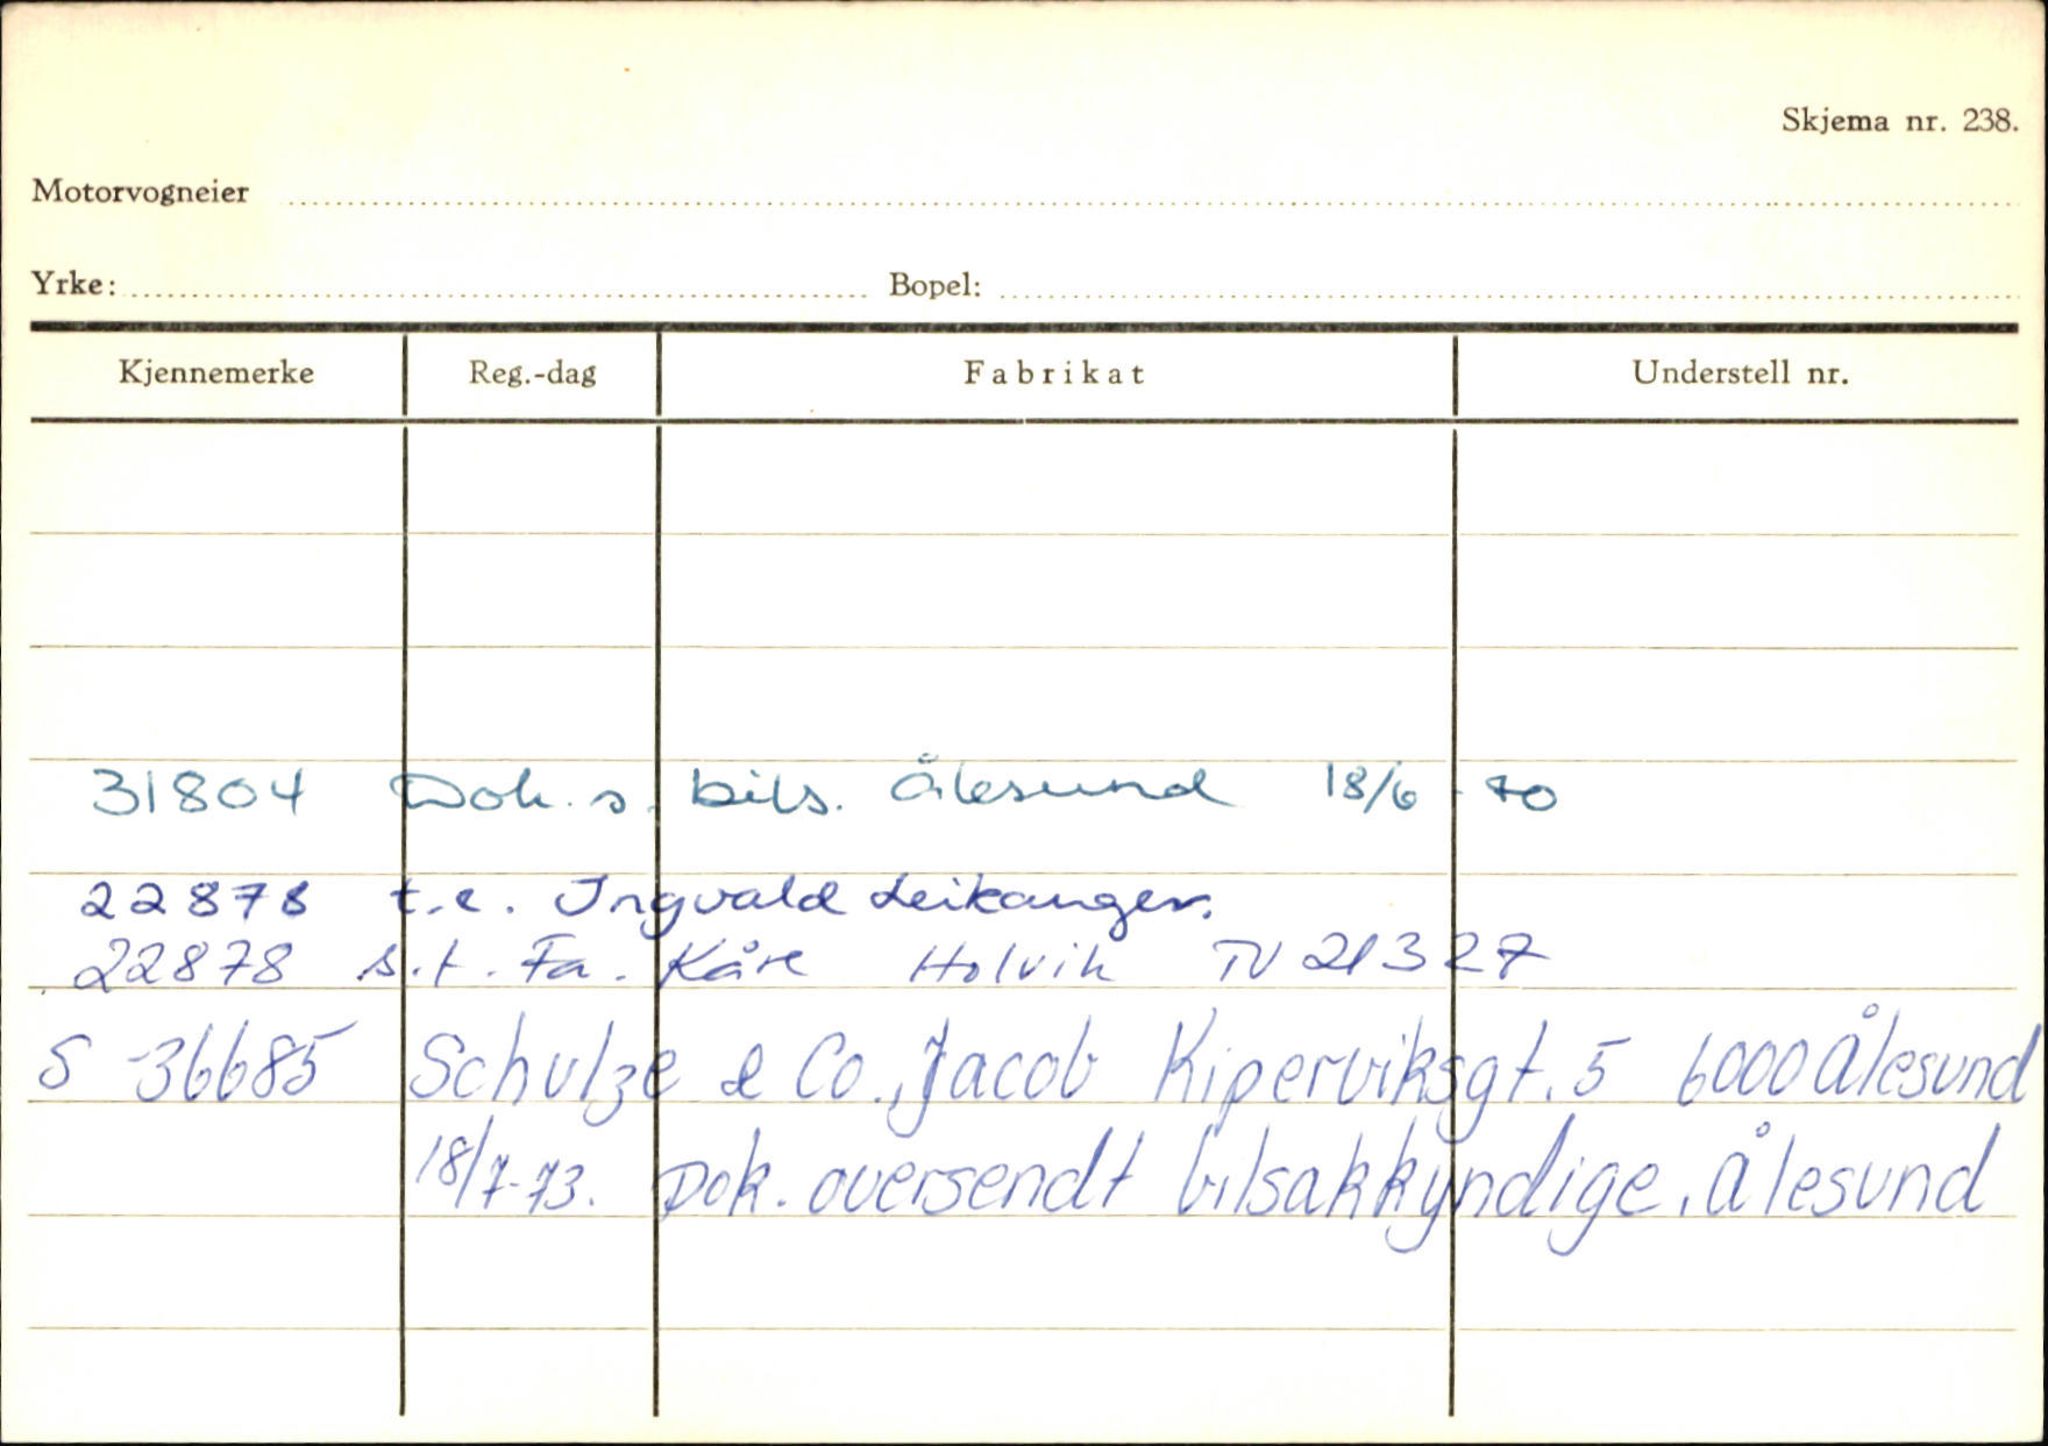 Skjema nr. 238.
Motorvogneier
Yrke: Bopel:
Kjennemerke Reg.-dag Fabrikat Understell nr.
31804 Dok. s. bils. Ålesund 18/6 - 70
22878 t.e. Ingvald Leikanger.
22878 s.t. Fa. Kåre Holvik TV 21327
S -36685 Schulze & Co., Jacob Kiperviksgt. 5 6000 Ålesund
18/7-73. Dok. oversendt bilsakkyndige, Ålesund